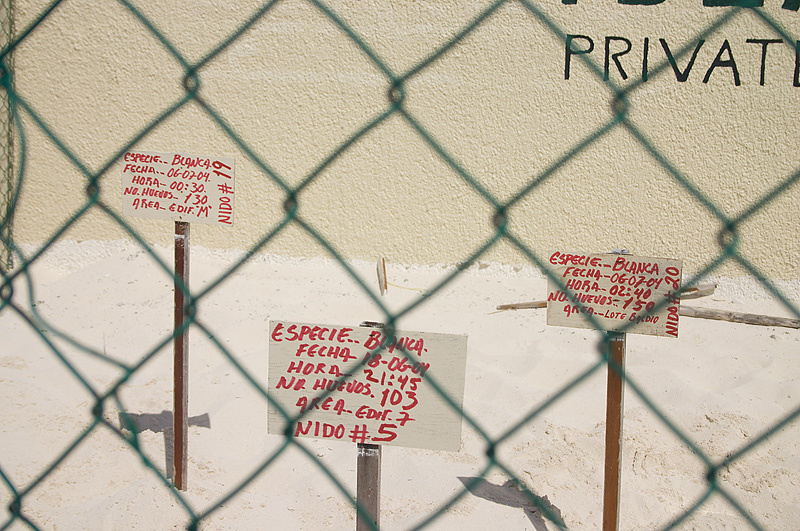 PRIVATE
ESPECIE.- BLANCA.
FECHA- 06-07-04.
HORA- 00:30.
NO. HUEVOS- 130
AREA- EDIF. "M"
NIDO # 19
ESPECIE.- BLANCA
FECHA- 06-07-04
HORA- 02:40
NO. HUEVOS- 150
AREA- LOTE BALDIO
NIDO # 20
ESPECIE- BLANCA.
FECHA- 18-06-04
HORA- 21:45
NO. HUEVOS. 103
AREA- EDIF. 7
NIDO # 5